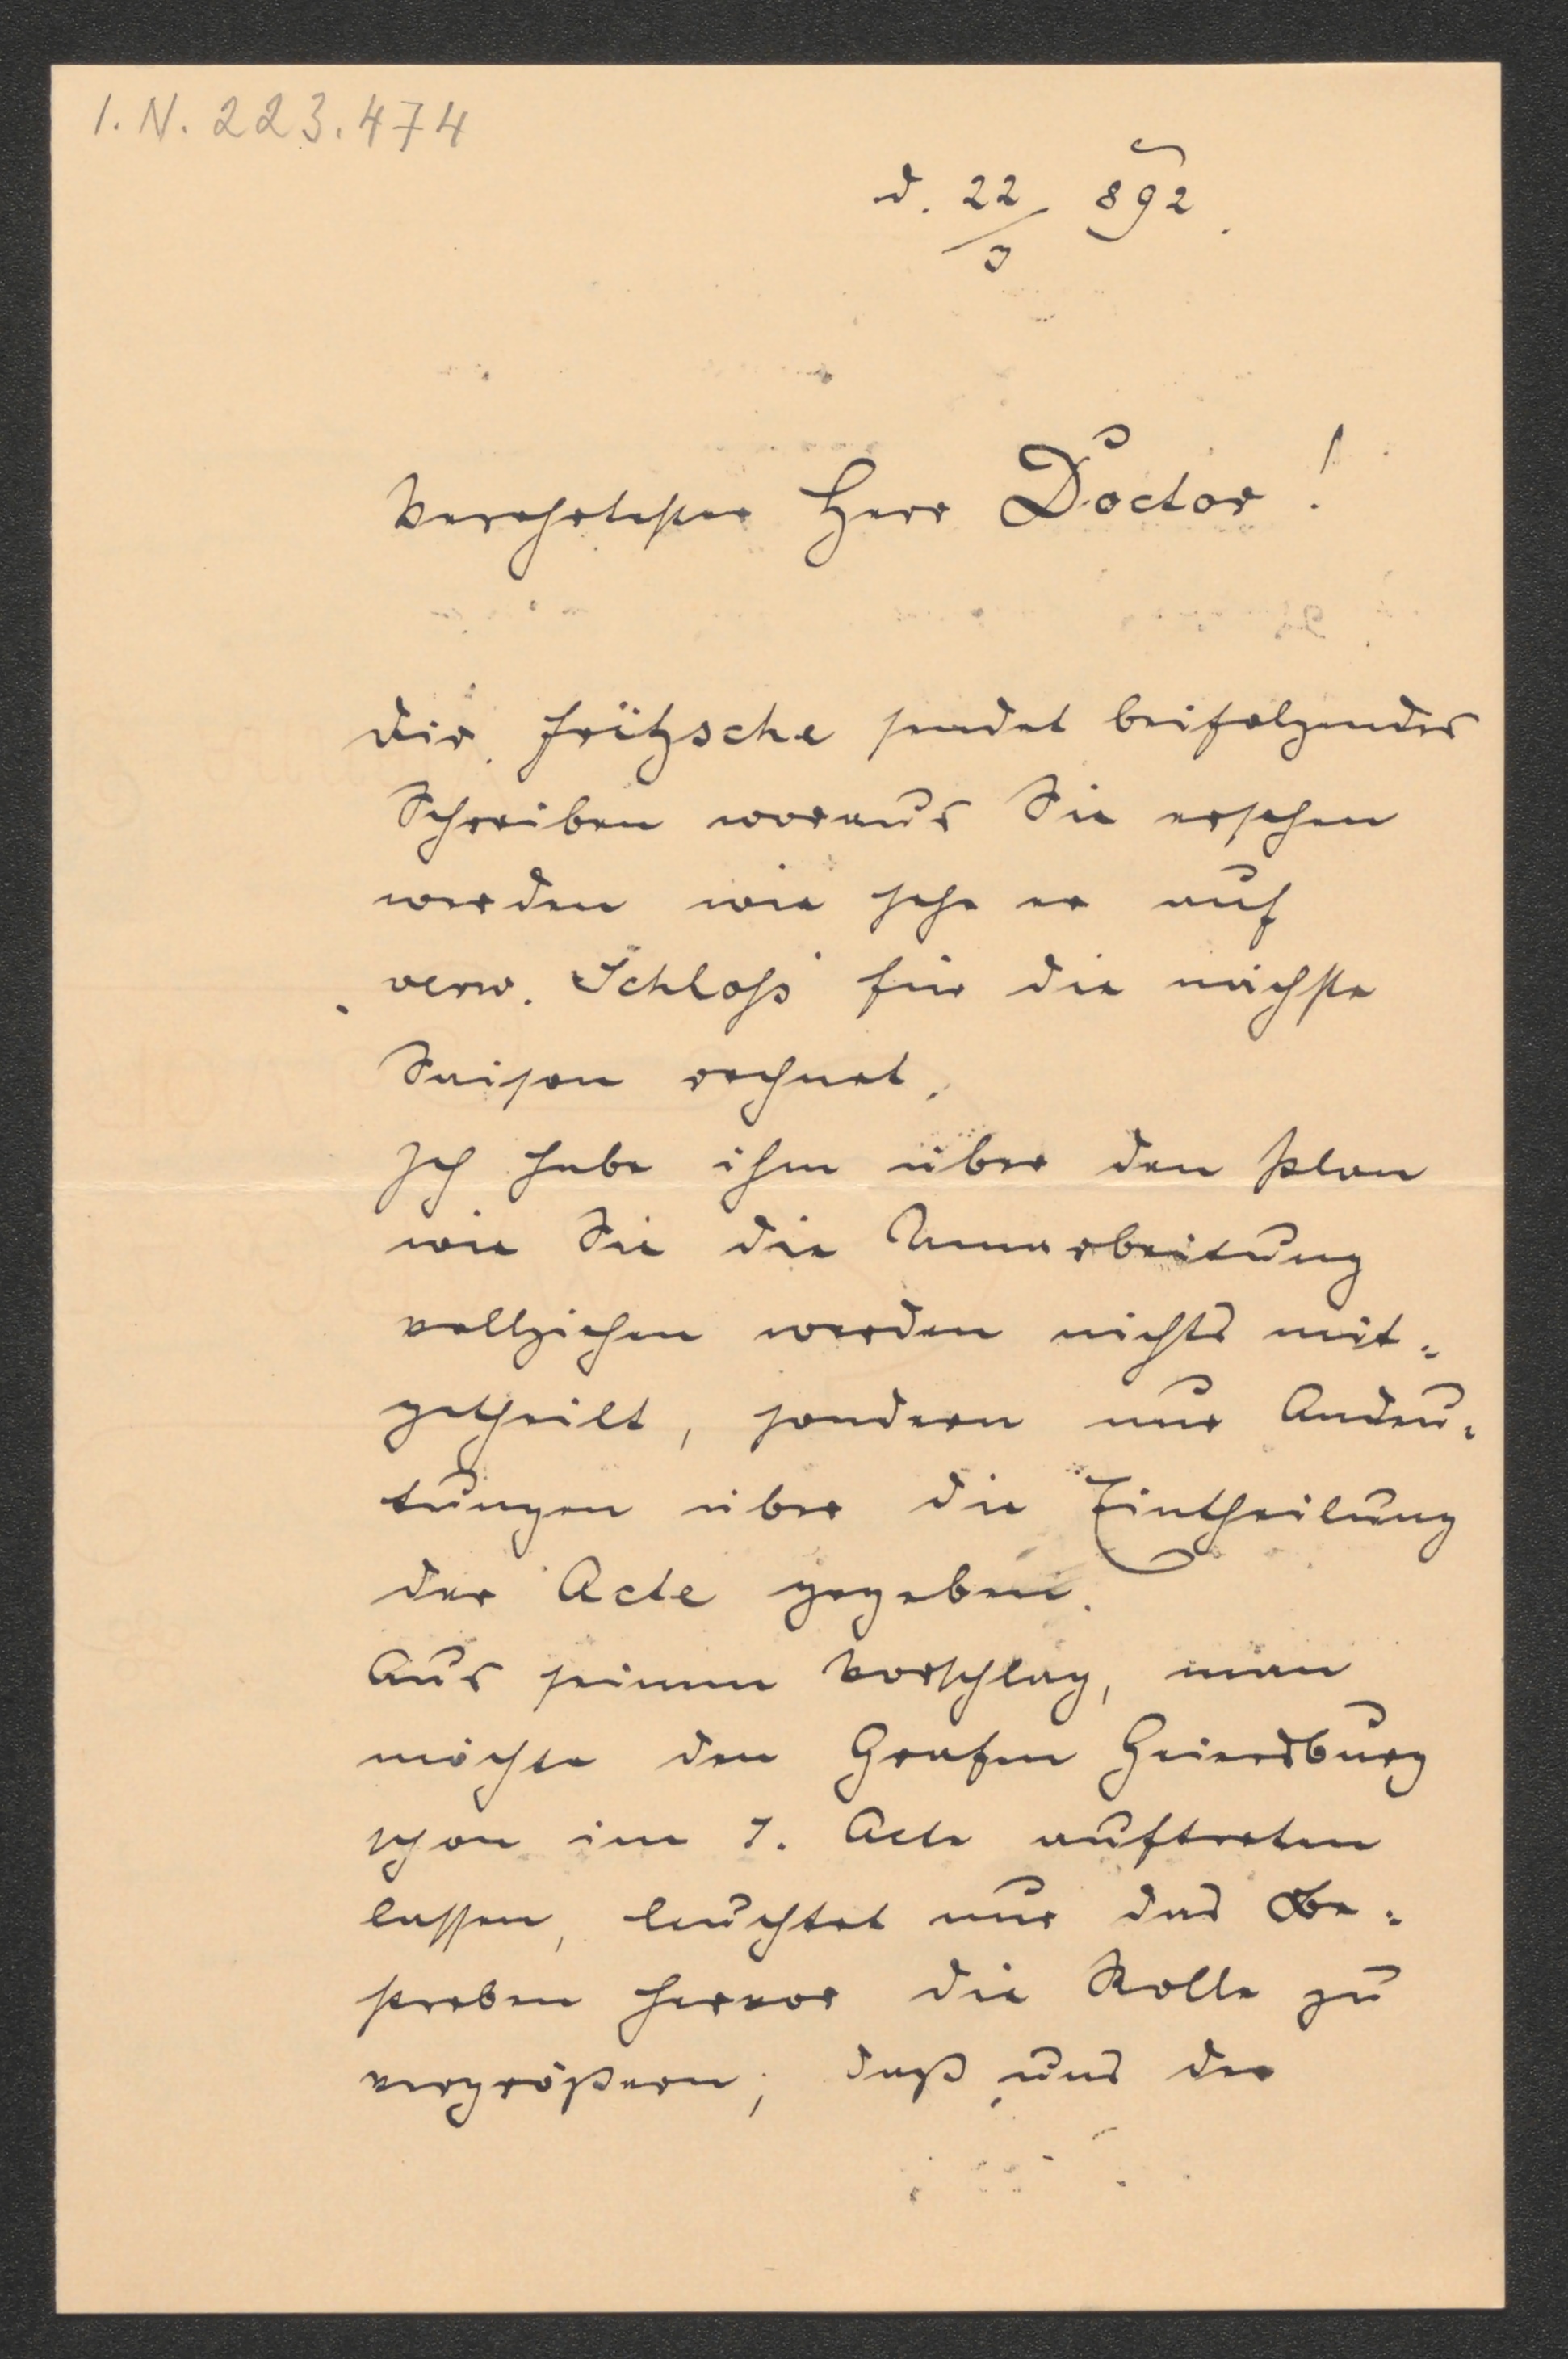 I. N. 223.474
d. 22/3 892.
Verehrtester Herr Doctor!
Dir. Fritzsche sendet beifolgendes
Schreiben woraus Sie ersehen
werden wie sehr er auf
verw. Schloß für die nächste
Saison rechnet.
Ich habe ihm über den Plan
wie Sie die Umarbeitung
vollziehen werden nichts mit-
getheilt, sondern nur Andeu-
tungen über die Eintheilung
der Acte gegeben.
Aus seinem Vorschlag, man
möchte den Grafen Geiersburg
schon im 1. Acte auftreten
lassen, leuchtet nur das Be-
streben hervor die Rolle zu
vergrößern; daß uns der